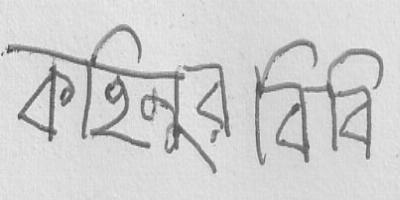 কহিনুর বিবি